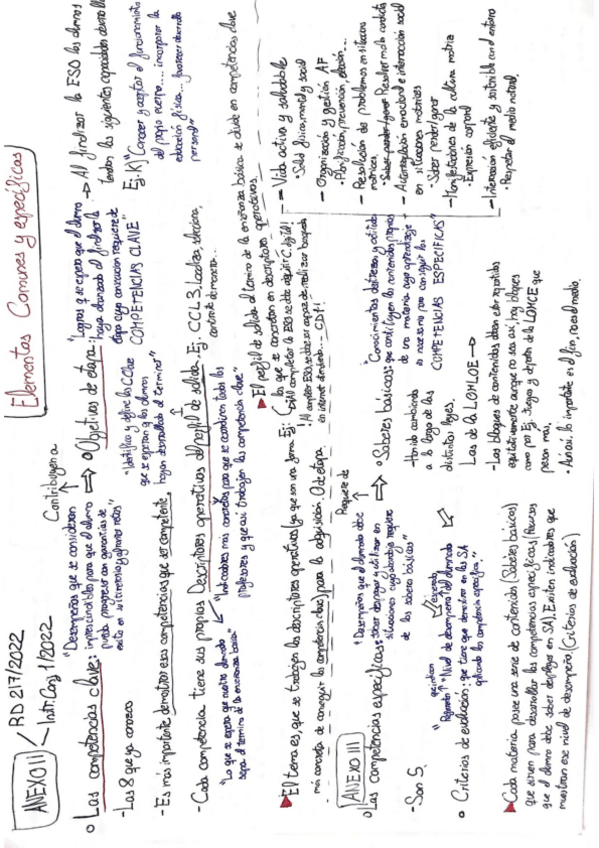 Elementos Comunes y específicos
ANEXO II
RD 217/2022
Instr. Conj 1/2022
Contribuyen a
o Las competencias clave:
"Desempeños que se consideran
imprescindibles para que el alumno
pueda progresar con garantías de
éxito en su itinerario y afrontar retos"
⇒ o Objetivos de etapa:
"Logros que se espera que el alumno
haya alcanzado al finalizar la
etapa cuya consecución requiere de
COMPETENCIAS CLAVE"
→ Al finalizar la ESO los alumnos
tendrán las siguientes capacidades
Ej: K) "Conocer y aceptar el funcionamiento
del propio cuerpo.... incorporar la
educación física... favorecer desarrollo
personal"
- Las 8 que ya conoces
"Identifica y define las CClave
que se espera que los alumnos
hayan desarrollado al terminar"
- Es más importante demostrar esas competencias que ser competente.
- Cada competencia tiene sus propios Descriptores operativos del perfil de salida. Ej: CCL3. Localiza, selecciona,
contrasta de manera...
"Lo que se espera que nuestro alumnado
sepa al término de la enseñanza básica"
"Indicadores más concretos para que se coordinen todos los
profesores y que así trabajen las competencias clave"
▶ El perfil de salida al término de la enseñanza básica se divide en competencias clave
las que se concretan en descriptores operativos.
▶ El tema es, que se trabajen los descriptores operativos (ya que son una forma
más concreta de conseguir la competencia clave) para la adquisición O. de etapa.
Ej: Al completar la ESO se debe adquirir C. digital!
! Al completar ESO se debe ser capaz de realizar búsquedas
en internet atendiendo... CD1!
ANEXO III
Requiere de
o Las competencias específicas:
"Desempeños que el alumnado debe
saber desplegar y utilizar en
situaciones cuyo abordaje requiere
de los saberes básicos"
⇒ o Saberes básicos:
"Conocimientos, destrezas y actitudes
que constituyen los contenidos propios
de una materia cuyo aprendizaje
es necesario para conseguir las
COMPETENCIAS ESPECÍFICAS"
- Vida activa y saludable
• Salud física, mental y social
- Organización y gestión AF
• Planificación, prevención, elección...
- Resolución de problemas en situaciones
motrices.
• Resolver
- Autorregulación emocional e interacción social
en situaciones motrices
• Saber perder/ganar
- Manifestaciones de la cultura motriz
• Expresión corporal
- Interacción eficiente y sostenible con el entorno
• Respetar el medio natural.
- Son 5.
- Han ido cambiando
a lo largo de las
distintas leyes.
Las de la LOMLOE →
o Criterios de evaluación:
"Nivel de desempeño del alumnado
que tiene que demostrar en las SA
aplicando las competencias específicas"
- Los bloques de contenidos deben estar repartidos
equitativamente aunque no sea así, hay bloques
como por Ej: Juegos y deportes de la LOMCE que
pesan más.
• Aún así, lo importante es el fin, no es el medio.
▶ Cada materia posee una serie de contenidos (Saberes básicos)
que sirven para desarrollar las competencias específicas (Recursos
que el alumno debe saber desplegar en SA). Existen indicadores que
muestran ese nivel de desempeño. (Criterios de evaluación)